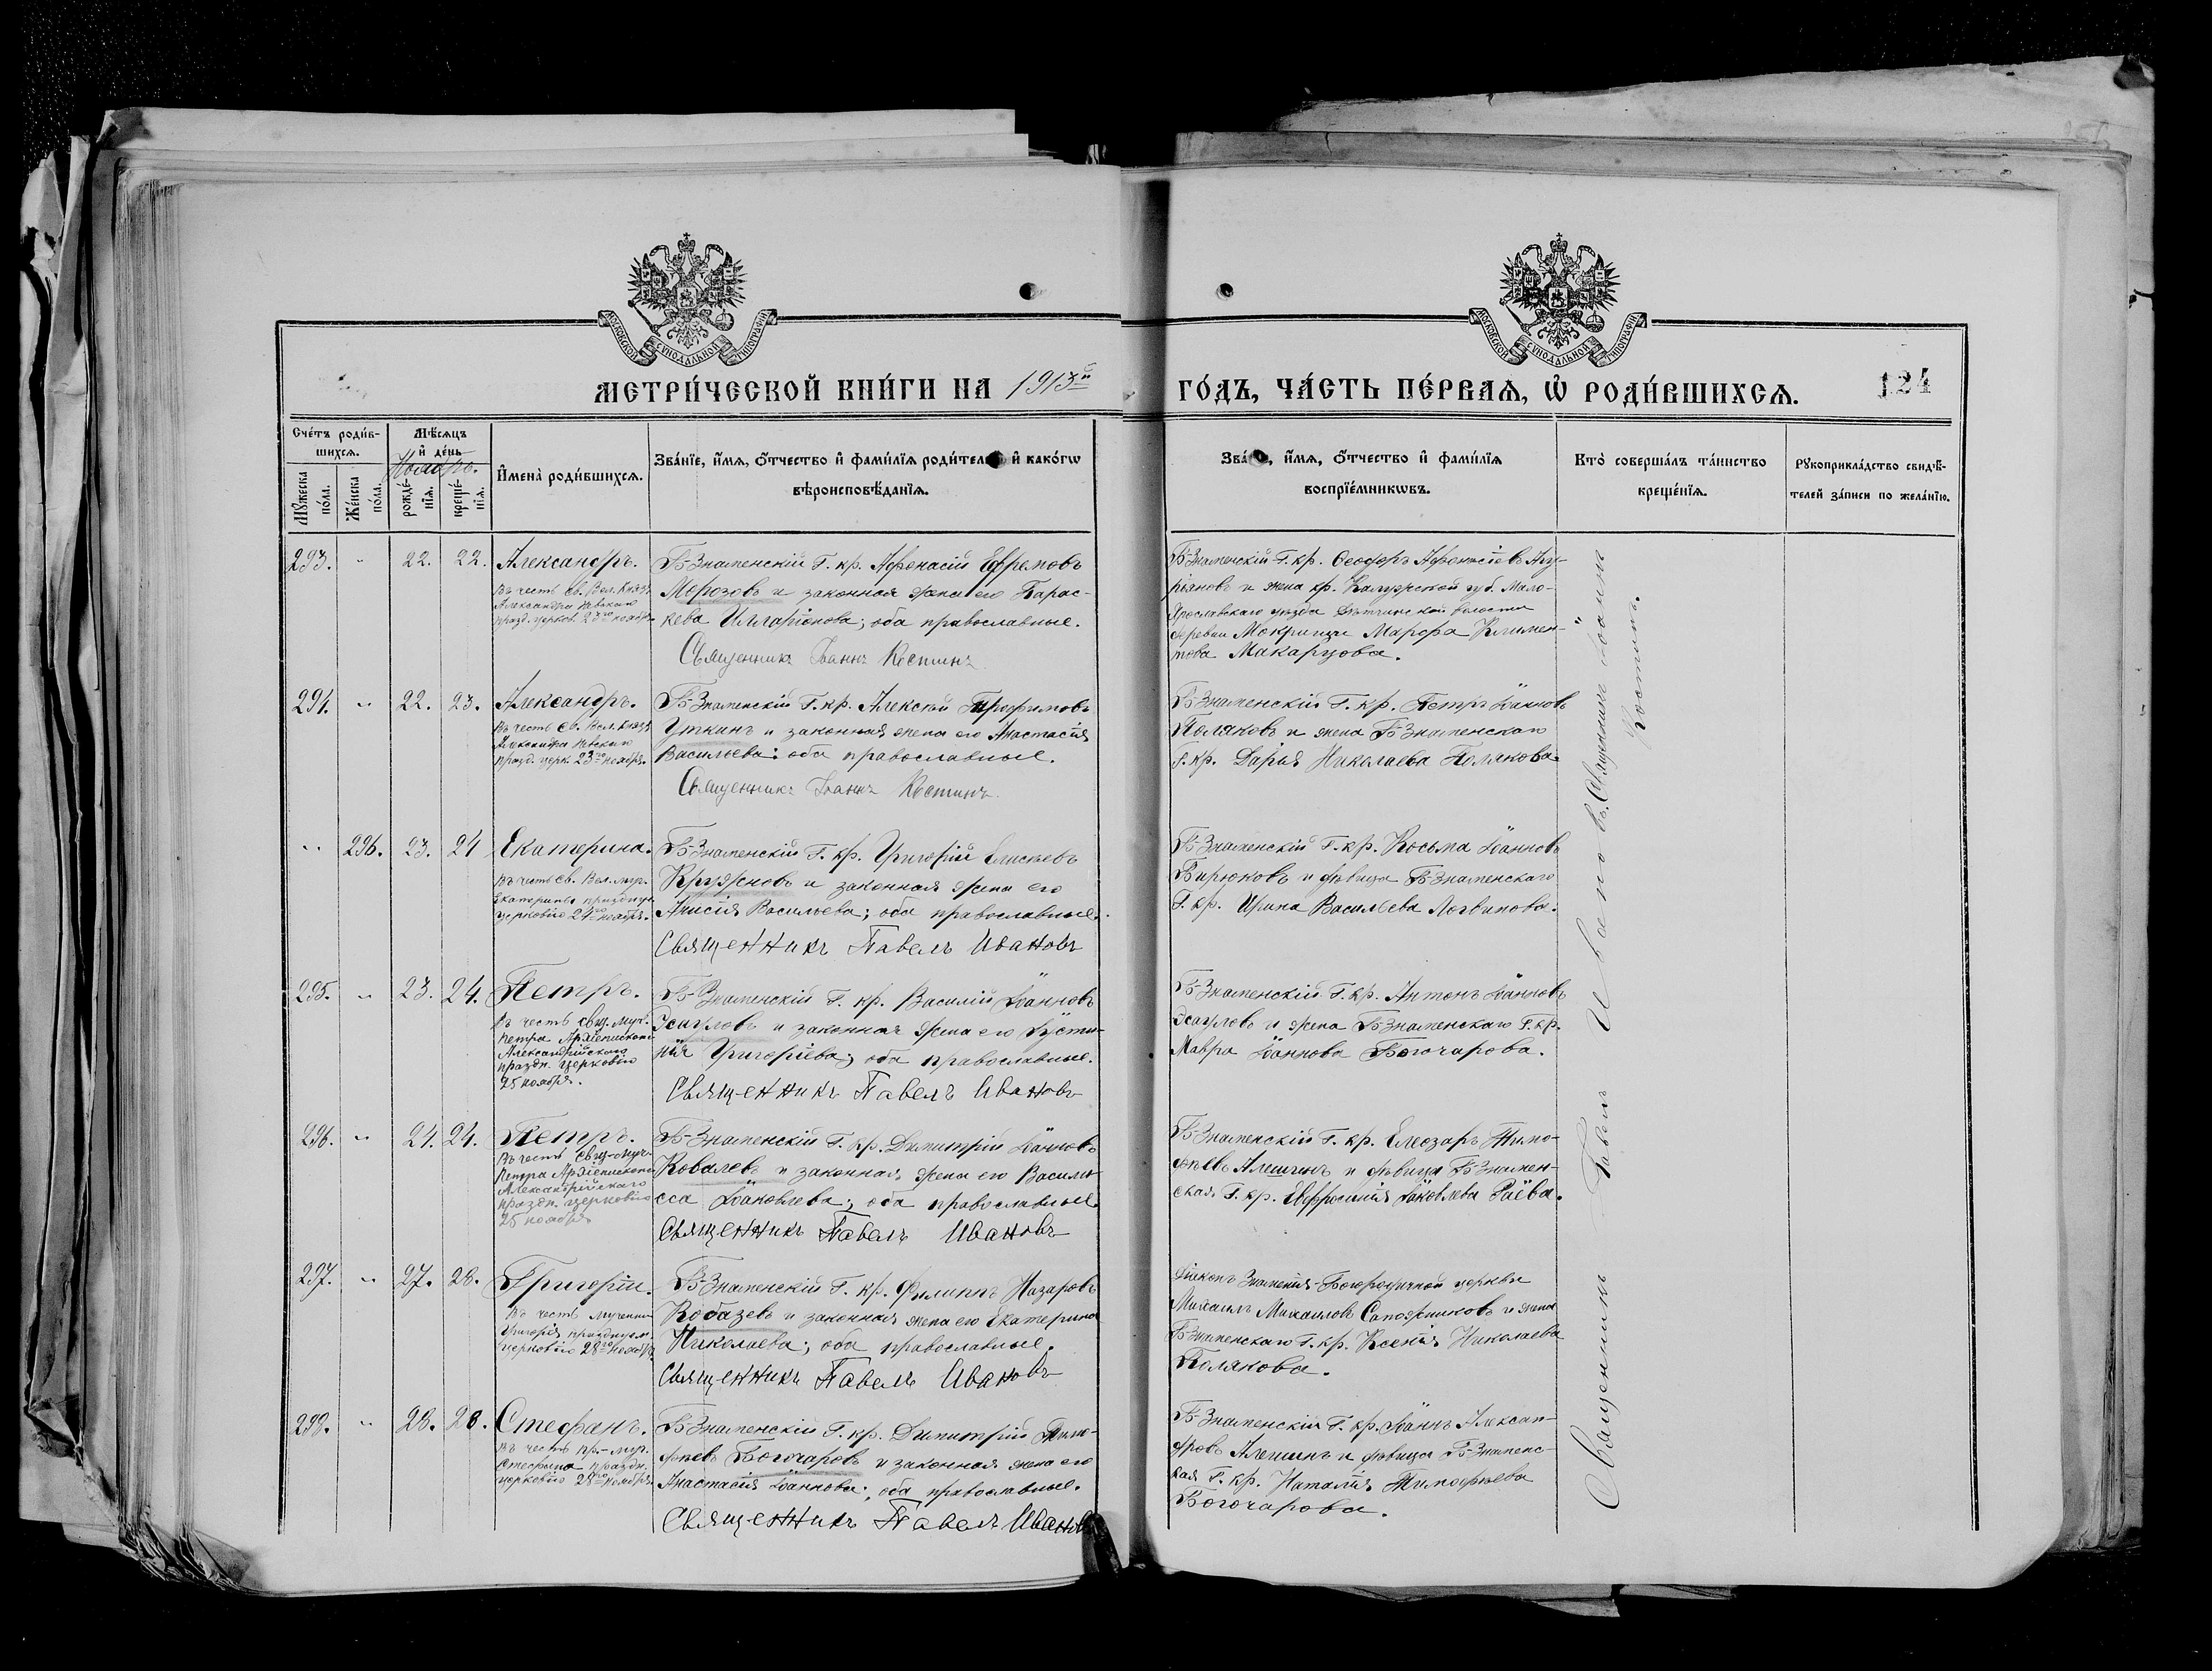 МЕТРИ́ЧЕСКОЙ КНИ́ГИ НА 1913й
ГО́ДЪ, ЧА́СТЬ ПЕ́РВАѦ, Ѡ҆ РОДИ́ВШИХСѦ.
124
Сче́тъ роди́в-
шихсѧ.
Мѣ́сѧцъ
и҆ де́нь
Ноябрь.
И҆мена̀ роди́вшихсѧ.
Зва́нїе, и҆́мѧ, ѻ҆́тчество и҆ фами́лїѧ роди́телей и҆ како́гѡ
вѣроисповѣ́данїѧ.
Мꙋ́жеска
по́ла.
Же́нска
по́ла.
рожде́-
нїѧ.
креще́-
нїѧ.
Зва́нїе, и҆́мѧ, ѻ҆́тчество и҆ фами́лїѧ
воспрїе́мникѡвъ.
Кто̀ соверша́лъ та́инство
креще́нїѧ.
Рꙋкоприкла́дство свидѣ́-
телей за́писи по жела́нїю.
293. " 22. 22. Александръ.
Въ честь Св. Вел. Князя
Александра Невскаго
празд. церков. 23го ноября
Б-Знаменскій Г. кр. Афонасій Ефремовъ
Морозовъ и законная жена его Парас-
кева Илларіонова; оба православные.
Священникъ Іоаннъ Костинъ
Б-Знаменскій Г. кр. Ѳеодоръ Афонасіевъ
и жена кр. Калужской губ. Мало-
Ярославскаго уѣзда волости
деревни Мокрищи Марфа Климен-
това Макарцова.
294. " 22. 23. Александръ.
Въ честь Св. Вел. Князя
Александра Невскаго
празд. церк. 23го ноября.
Б-Знаменскій Г. кр. Алексѣй Трофимовъ
Уткинъ и законная жена его Анастасія
Васильева; оба православные.
Священникъ Іоаннъ Костинъ
Б-Знаменскій Г. кр. Петръ Іоанновъ
Поляковъ и жена Б-Знаменскаго
Г. кр. Дарья Николаева Полякова.
" 296. 23. 24 Екатерина.
Въ честь Св. Вел. муч.
Екатерины празднуе.
церковію 24го ноября.
Б-Знаменскій Г. кр. Григорій Елисѣевъ
Кружновъ и законная жена его
Анисія Васильева; оба православные.
Священникъ Павелъ Ивановъ
Б-Знаменскій Г. кр. Косьма Іоанновъ
Бирюковъ и дѣвица Б-Знаменскаго
Г. кр. Ирина Васильева Логвинова.
295. " 23. 24. Петръ.
Въ честь свщ. муч.
Петра Архіепископа
Александрійскаго
праздн. церковію
25 ноября.
Б-Знаменскій Г. кр. Василій Іоанновъ
Эсауловъ и законная жена его Іусти-
нія Григоріева; оба православные.
Священникъ Павелъ Ивановъ
Б-Знаменскій Г. кр. Антонъ Іоанновъ
Эсауловъ и жена Б-Знаменскаго Г. кр.
Мавра Іоаннова Богочарова.
296. " 24. 24. Петръ.
Въ честь Свщ-муч.
Петра Архіепископа
Александрійскаго
праздн. церковію
25 ноября
Б-Знаменскій Г. кр. Димитрій Іоанновъ
Ковалевъ и законная жена его Васили-
сса Іаковлева; оба православные.
Священникъ Павелъ Ивановъ
Б-Знаменскій Г. кр. Елеозаръ Тимо-
фѣевъ Алешинъ и дѣвица Б-Знамен-
ская Г. кр. Евфросинія Іаковлева Раева.
297. " 27. 28. Григорій.
Въ честь мученика
Григорія празднуем.
церковію 28го ноября
Б-Знаменскій Г. кр. Филиппъ Назаровъ
Кобазевъ и законная жена его Екатерина
Николаева; оба православные.
Священникъ Павелъ Ивановъ
Діаконъ Знаменія-Богородичной церкви
Михаилъ Михаиловъ Сапожниковъ и жена
Б-Знаменскаго Г. кр. Ксенія Николаева
Полякова.
298. " 28. 28. Стефанъ.
Въ честь пр.-муч.
Стефана праздн.
церковію 28го ноября
Б-Знаменскій Г. кр. Димитрій Тимо-
фѣевъ Богочаровъ и законная жена его
Анастасія Іоаннова; оба православные.
Священникъ Павелъ Ивановъ
Б-Знаменскій Г. кр. Іоаннъ Алексан-
дровъ Алешинъ и дѣвица Б-Знаменс-
кая Г. кр. Наталія Тимофѣева
Богочарова.
Священникъ Павелъ Ивановъ. Священникъ Іоаннъ
Костинъ.